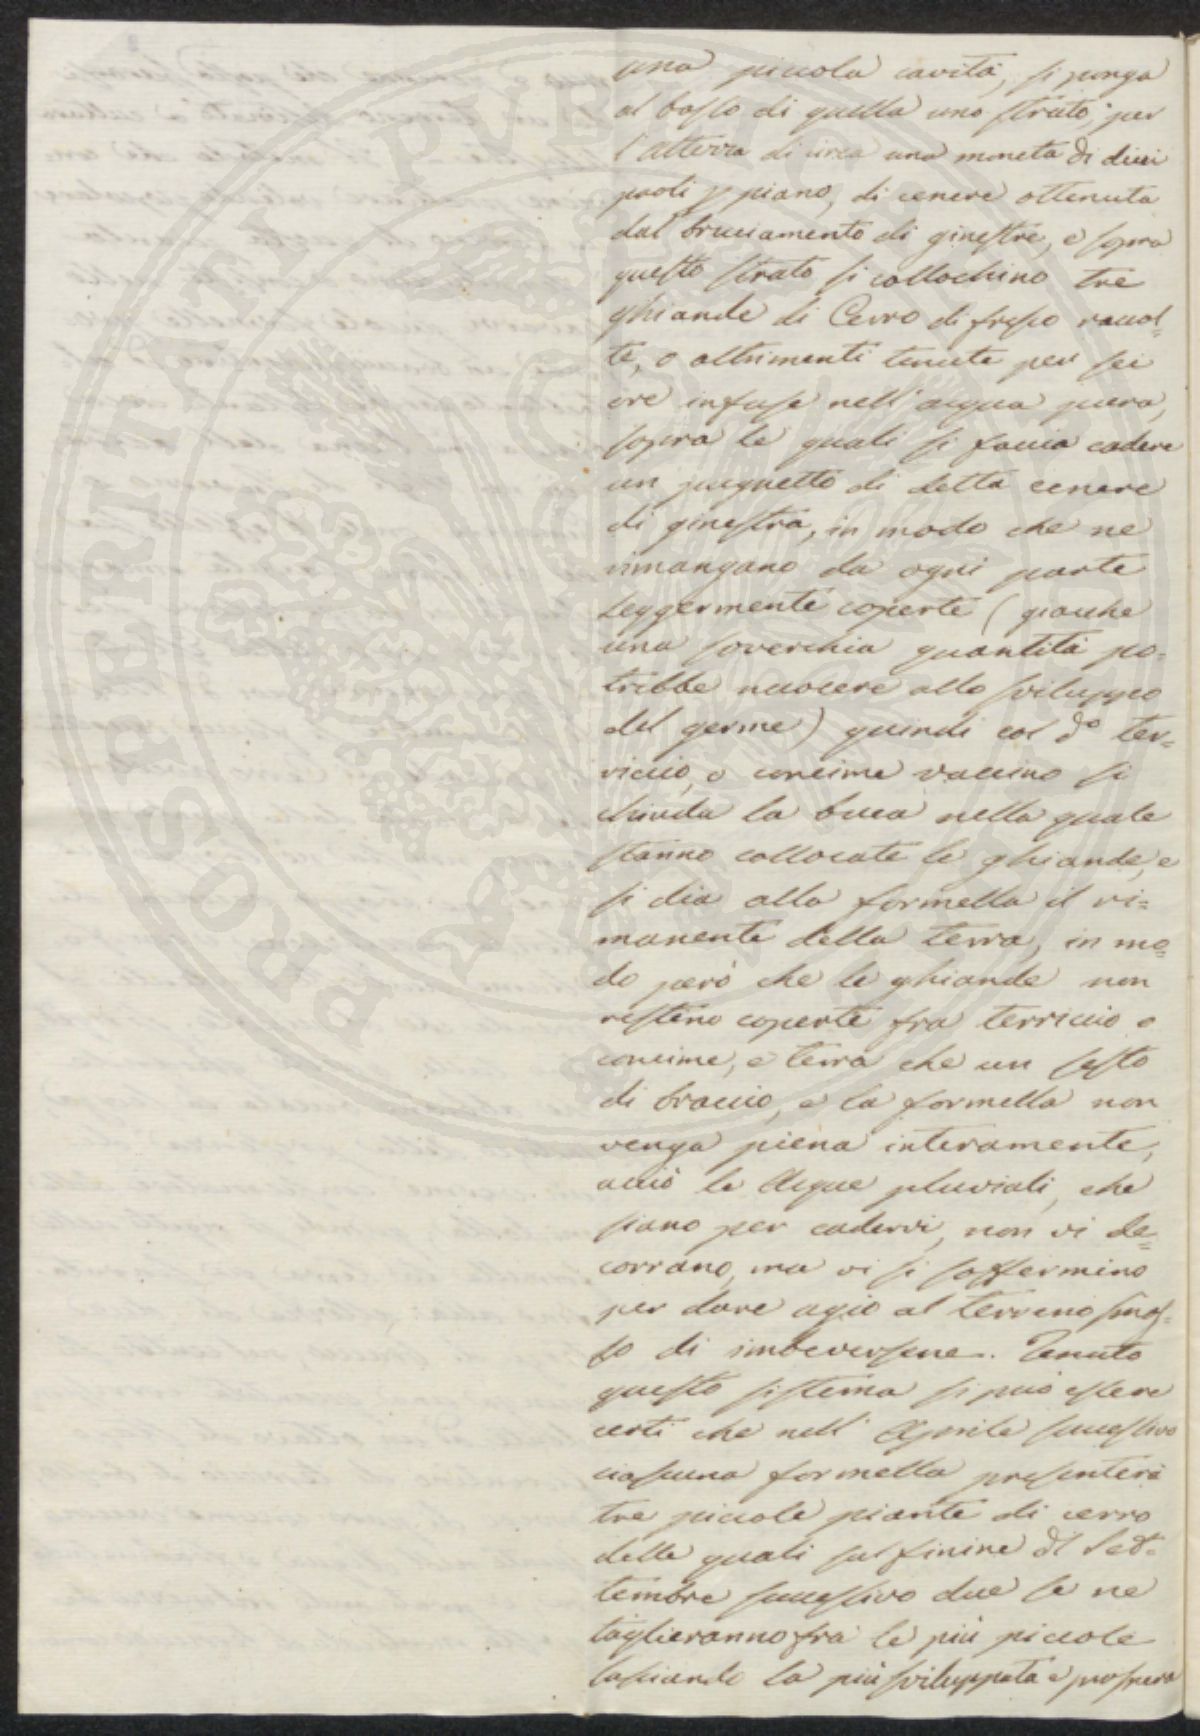 una piccola cavità, si ponga
al basso di quella uno strato, per
l'altezza di circa una moneta di dieci
paoli p piano, di cenere ottenuta
dal bruciamento di ginestre, e sopra
questo strato si collochino tre
ghiande di Cerro di fresco raccol=
te, o altrimenti tenute per sei
ore infuse nell'acqua pura,
sopra le quali si faccia cadere
un pugnetto di detta cenere
di ginestra, in modo che ne
rimangano da ogni parte
Leggermente coperte (giacche
una soverchia quantità po=
trebbe nuocere allo sviluppo
del germe) quindi col do ter=
riccio, o concime vaccino si
chiuda la buca nella quale
stanno collocate le ghiande, e
si dia alla formella il ri=
manente della terra, in mo=
do però che le ghiande non
restino coperte fra terriccio o
concime, e terra che un sesto
di braccio, e la formella non
venga piena interamente,
acciò le Acque pluviali, che
siano per cadervi, non vi de=
corrano, ma vi si soffermino
per dare agio al terreno smos=
so di imbeversene. Tenuto
questo sistema si può essere
certi che nell'Aprile successivo
ciascuna formella presenterà
tre piccole piante di cerro
delle quali sul finire di Set=
tembre successivo due se ne
taglieranno fra le più piccole
lasciando la più sviluppata e prospera
PROSPERITATI PVBLICAE